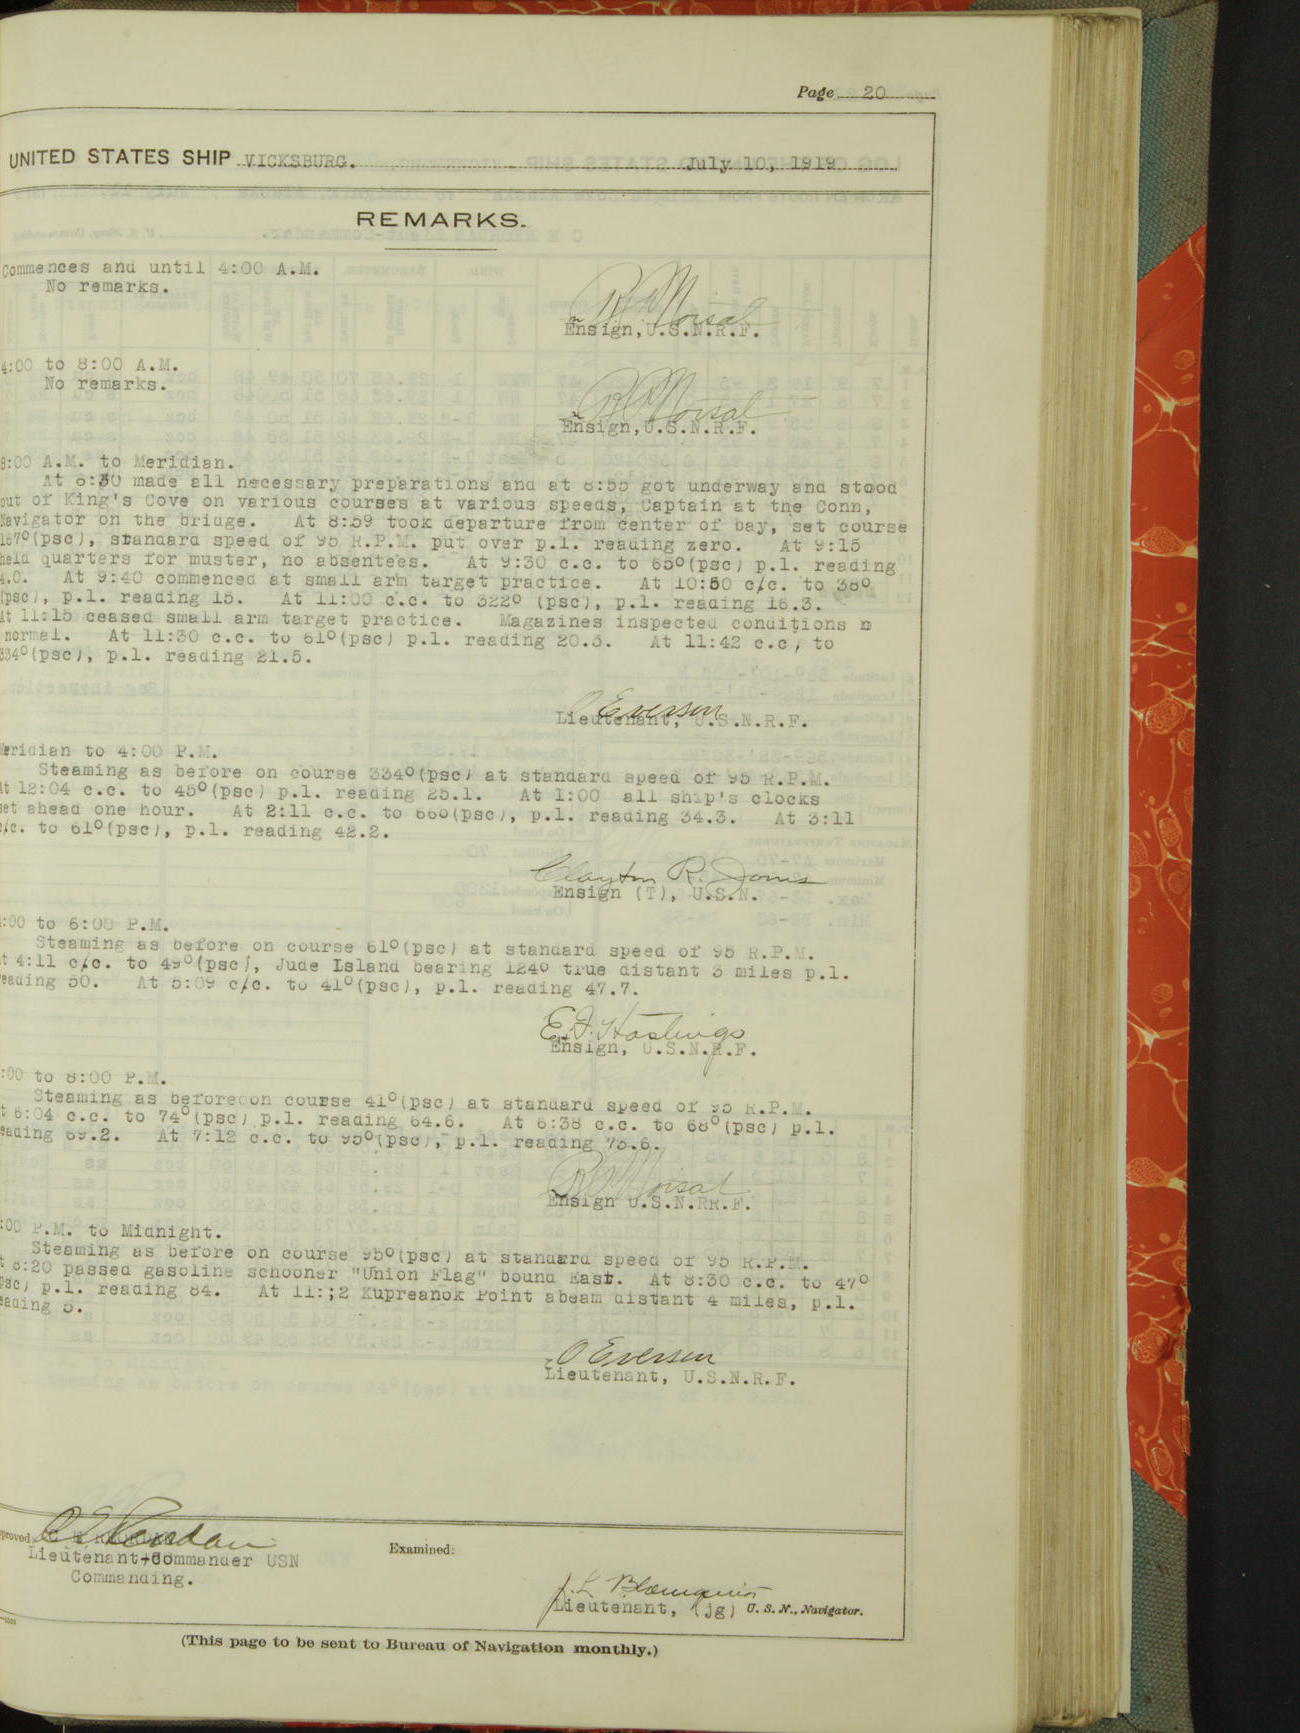 Page 20
UNITED STATES SHIP VICKSBURG. July 10, 1919
REMARKS.
Commences and until 4:00 A.M.
No remarks.
Ensign, U.S.N.R.F.
4:00 to 8:00 A.M.
No remarks.
Ensign, U.S.N.R.F.
8:00 A.M. to Meridian.
At 8:30 made all necessary preparations and at 8:55 got underway and stood
out of King's Cove on various courses at various speeds, Captain at the Conn,
Navigator on the bridge. At 8:59 took departure from center of bay, set course
167°(psc), standard speed of 95 R.P.M. put over p.l. reading zero. At 9:15
held quarters for muster, no absentees. At 9:30 c.c. to 65°(psc) p.l. reading
4.0. At 9:40 commenced at small arm target practice. At 10:50 c/c. to 38°
(psc), p.l. reading 15. At 11:00 c.c. to 322° (psc), p.l. reading 16.3.
At 11:15 ceased small arm target practice. Magazines inspected conditions
normal. At 11:30 c.c. to 61°(psc) p.l. reading 20.3. At 11:42 c.c, to
334°(psc), p.l. reading 21.5.
O Eversen
Lieutenant, U.S.N.R.F.
Meridian to 4:00 P.M.
Steaming as before on course 334°(psc) at standard speed of 95 R.P.M.
At 12:04 c.c. to 45°(psc) p.l. reading 25.1. At 1:00 all ship's clocks
set ahead one hour. At 2:11 c.c. to 66°(psc), p.l. reading 34.3. At 3:11
c/c. to 61°(psc), p.l. reading 42.2.
Clayton R. Jones
Ensign (T), U.S.N.
:00 to 6:00 P.M.
Steaming as before on course 61°(psc) at standard speed of 95 R.P.M.
t 4:11 c/c. to 49°(psc), Jude Island bearing 124° true distant 3 miles p.l.
eading 50. At 5:09 c/c. to 41°(psc), p.l. reading 47.7.
E. F. Hastings
Ensign, U.S.N.R.F.
:00 to 8:00 P.M.
Steaming as before on course 41°(psc) at standard speed of 95 R.P.M.
t 6:04 c.c. to 74°(psc) p.l. reading 64.6. At 6:38 c.c. to 68°(psc) p.l.
eading 69.2. At 7:12 c.c. to 95°(psc), p.l. reading 73.6.
Ensign U.S.N.RR.F.
:00 P.M. to Midnight.
Steaming as before on course 95°(psc) at standard speed of 95 R.P.M.
t 8:20 passed gasoline schooner "Union Flag" bound East. At 8:30 c.c. to 47°
psc) p.l. reading 84. At 11:;2 Kupreanok Point abeam distant 4 miles, p.l.
eading 5.
O Eversen
Lieutenant, U.S.N.R.F.
pproved:
Lieutenant-Commander USN
Commanding.
Examined:
Lieutenant, (jg) U. S. N., Navigator.
(This page to be sent to Bureau of Navigation monthly.)